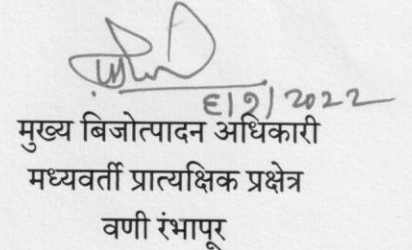 ६/१/2022
मुख्य बिजोत्पादन अधिकारी
मध्यवर्ती प्रात्यक्षिक प्रक्षेत्र
वणी रंभापूर